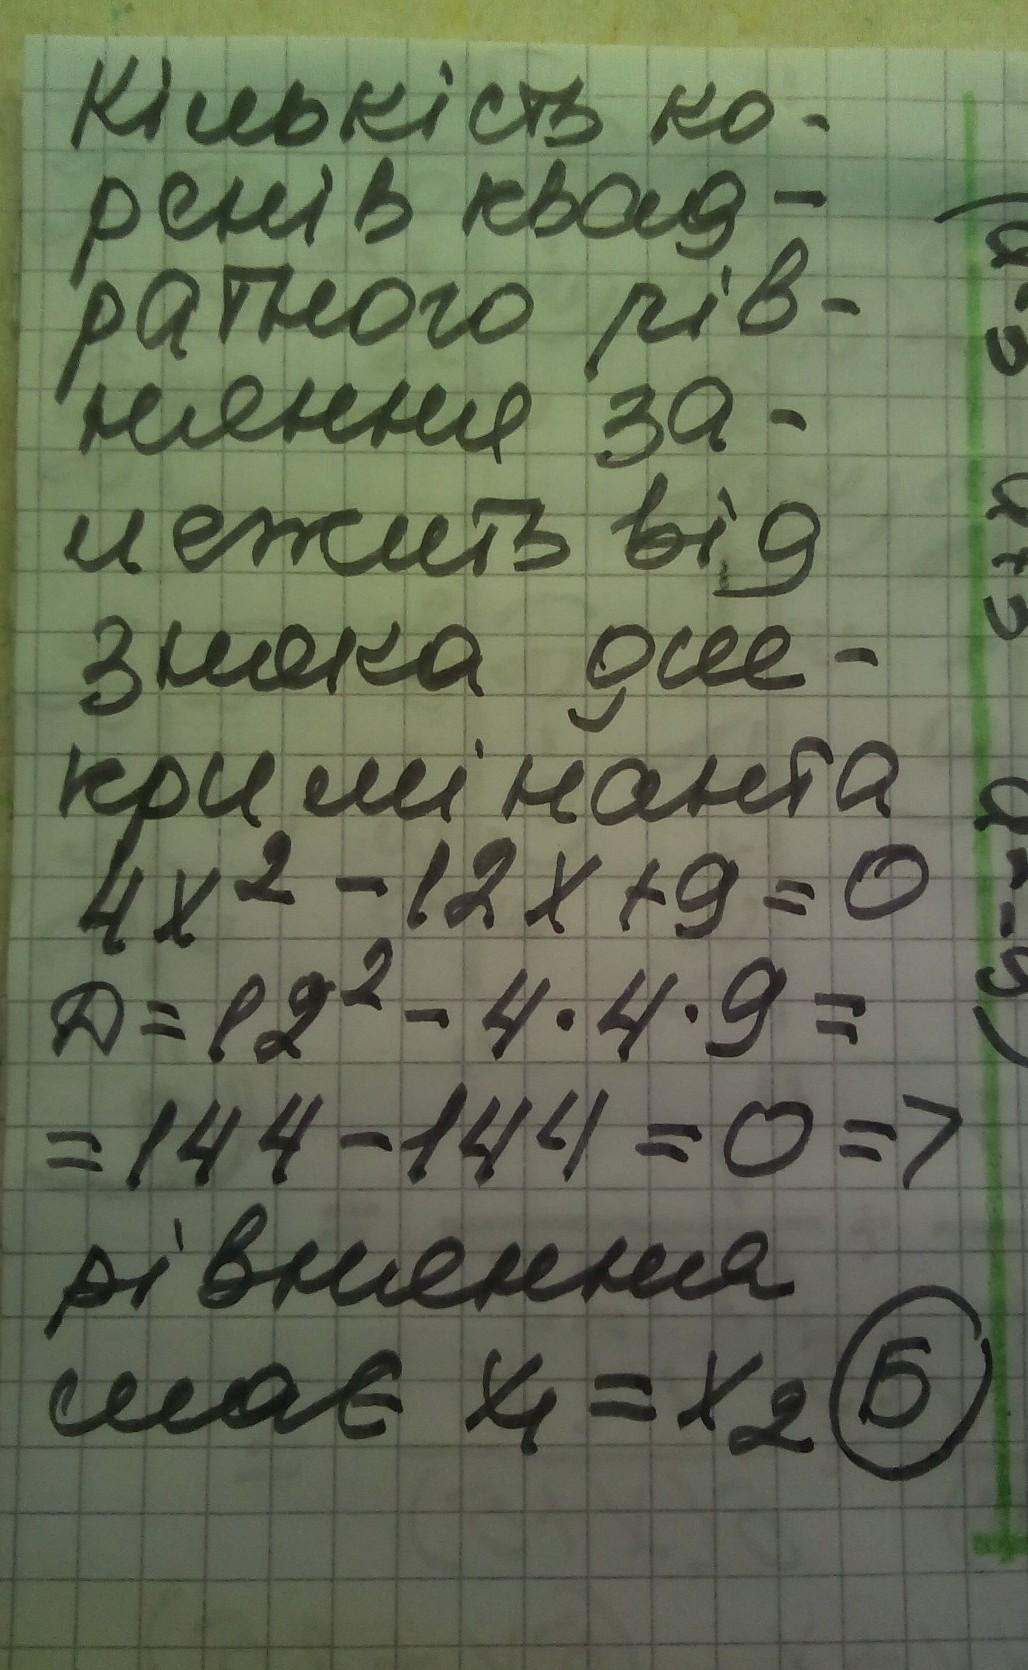 Кількість ко-
ренів квад-
ратного рів-
няння за-
лежить від
знака дис-
кримінанта
4x² - 12x + 9 = 0
D = 12² - 4 · 4 · 9 =
= 144 - 144 = 0 =>
рівняння
має x₁ = x₂ Б